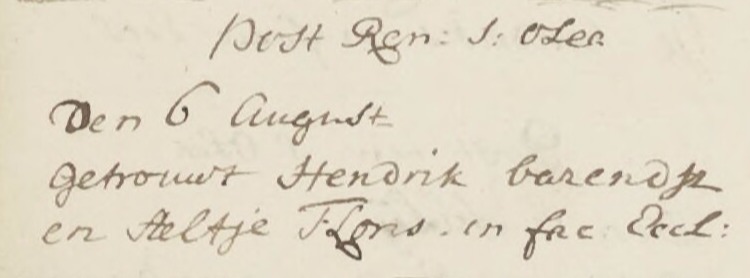 Post Ren: S: olea
Den 6 August
getrouwt Hendrik barendsz
en Aeltje Floris. in fac: Eccl: